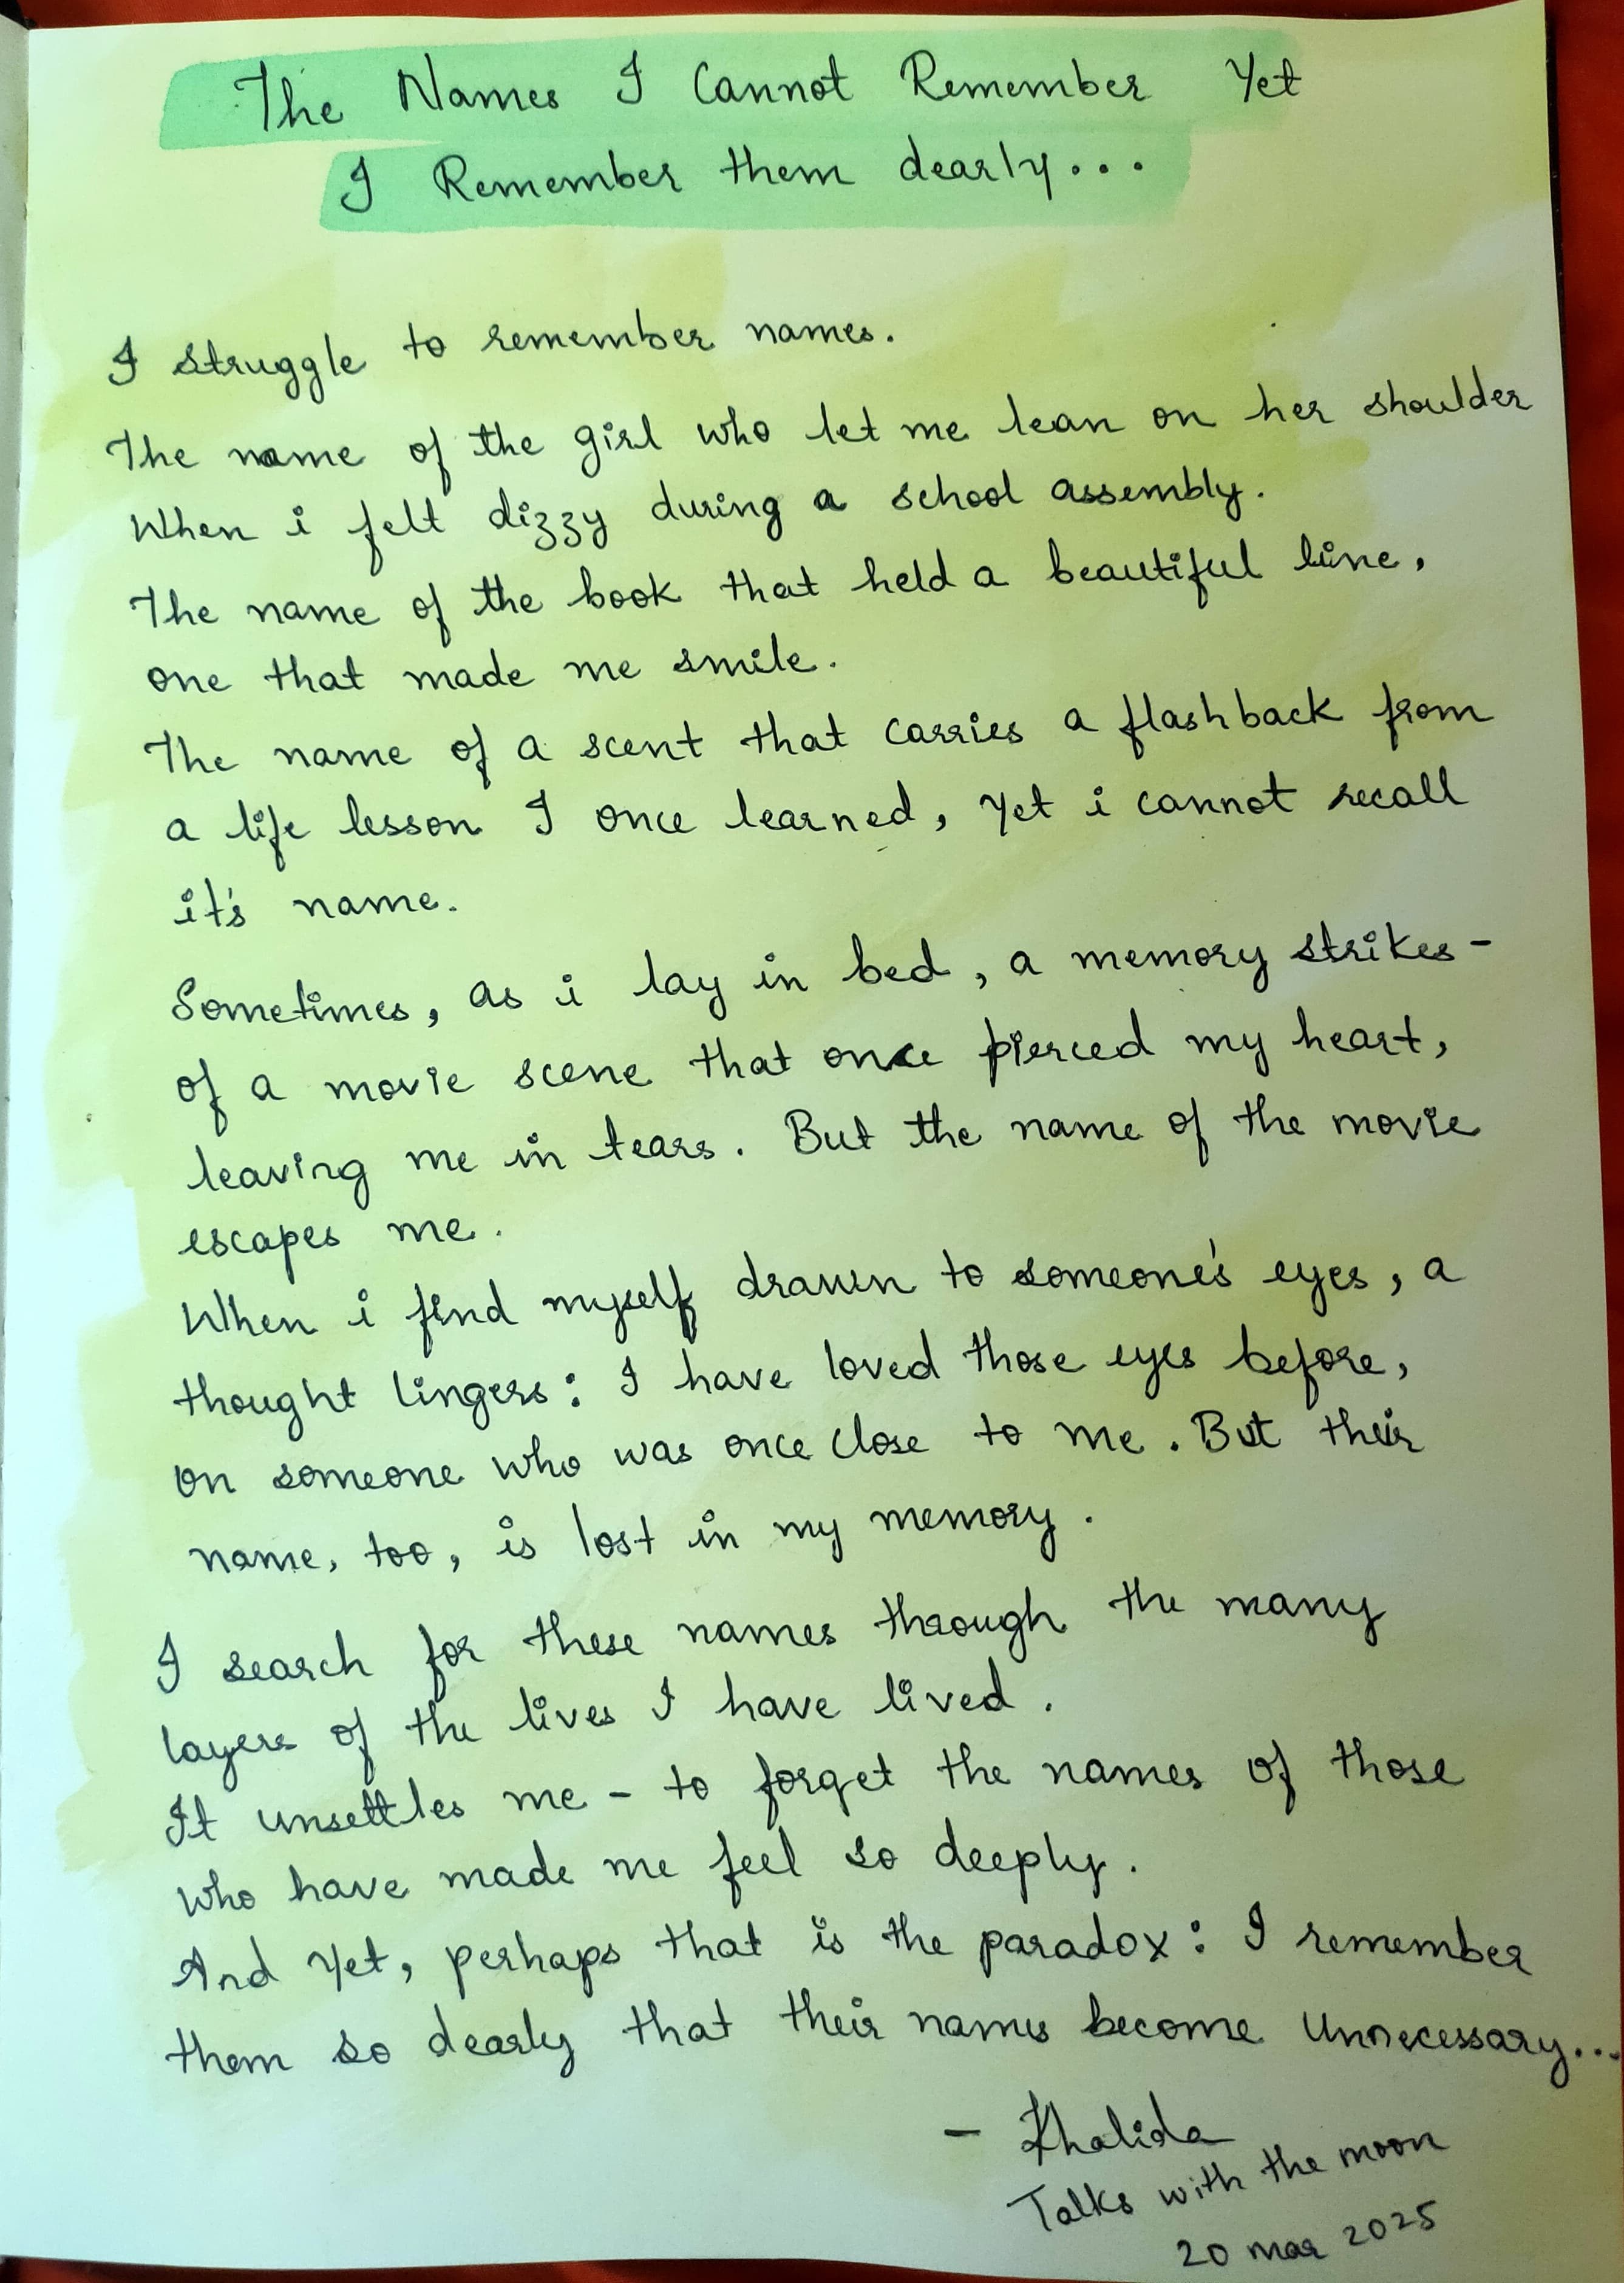 The Names I Cannot Remember Yet
I Remember them dearly...
I struggle to remember names.
The name of the girl who let me lean on her shoulder
When i felt dizzy during a school assembly.
The name of the book that held a beautiful line,
one that made me smile.
The name of a scent that carries a flashback from
a life lesson I once learned, Yet i cannot recall
it's name.
Sometimes, as i lay in bed, a memory strikes-
of a movie scene that once pierced my heart,
leaving me in tears. But the name of the movie
escapes me.
When i find myself drawn to someone's eyes, a
thought lingers: I have loved those eyes before,
on someone who was once close to me. But their
name, too, is lost in my memory.
I search for these names through the many
layers of the lives I have lived.
It unsettles me - to forget the names of those
who have made me feel so deeply.
And Yet, perhaps that is the paradox: I remember
them so dearly that their names become Unnecessary...
- Khalida
Talks with the moon
20 mar 2025